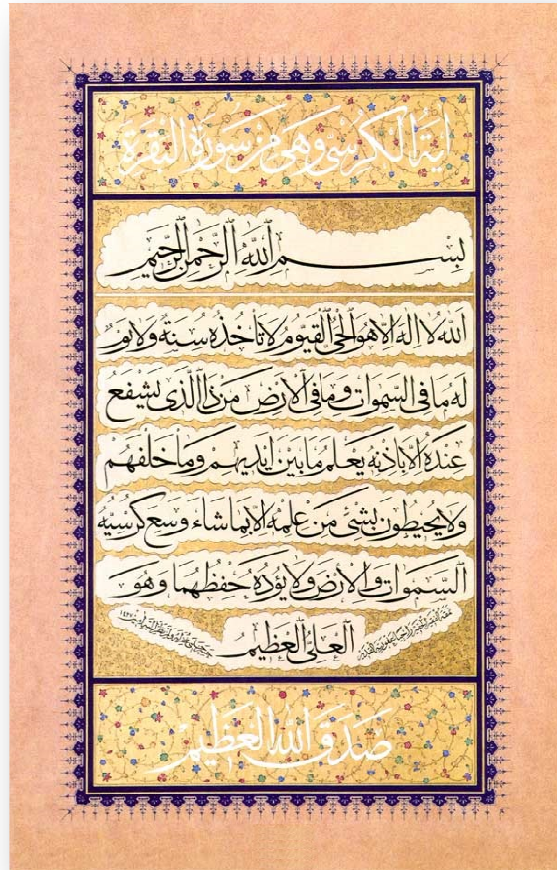 اية الكرسي وهي من سورة البقرة
بسم الله الرحمن الرحيم
الله لا اله الا هو الحي القيوم لا تأخذه سنة ولا نوم
له ما في السموات وما في الأرض من ذا الذي يشفع
عنده الا باذنه يعلم ما بين ايديهم وما خلفهم
ولا يحيطون بشئ من علمه الا بما شاء وسع كرسيه
السموات والأرض ولا يؤده حفظهما وهو
العلي العظيم
صدق الله العظيم